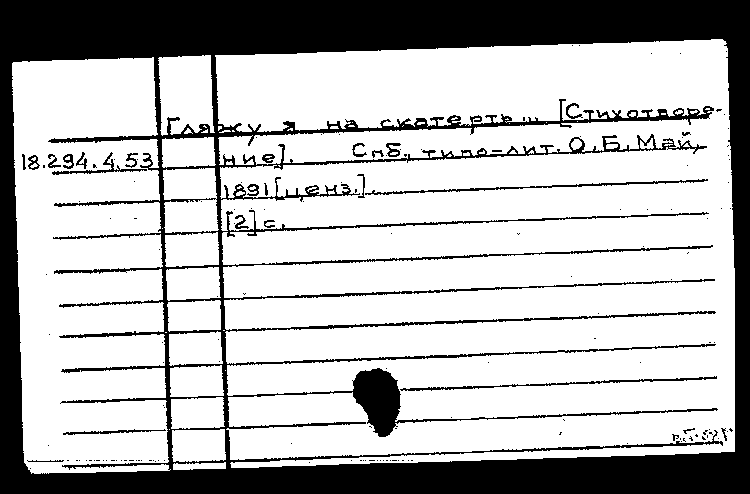 Гляжу я на скатерть... [Стихотворе-
18.294.4.53 ние]. Спб., типо-лит. О.Б. Май,
1891 [ценз.].
[2] с.